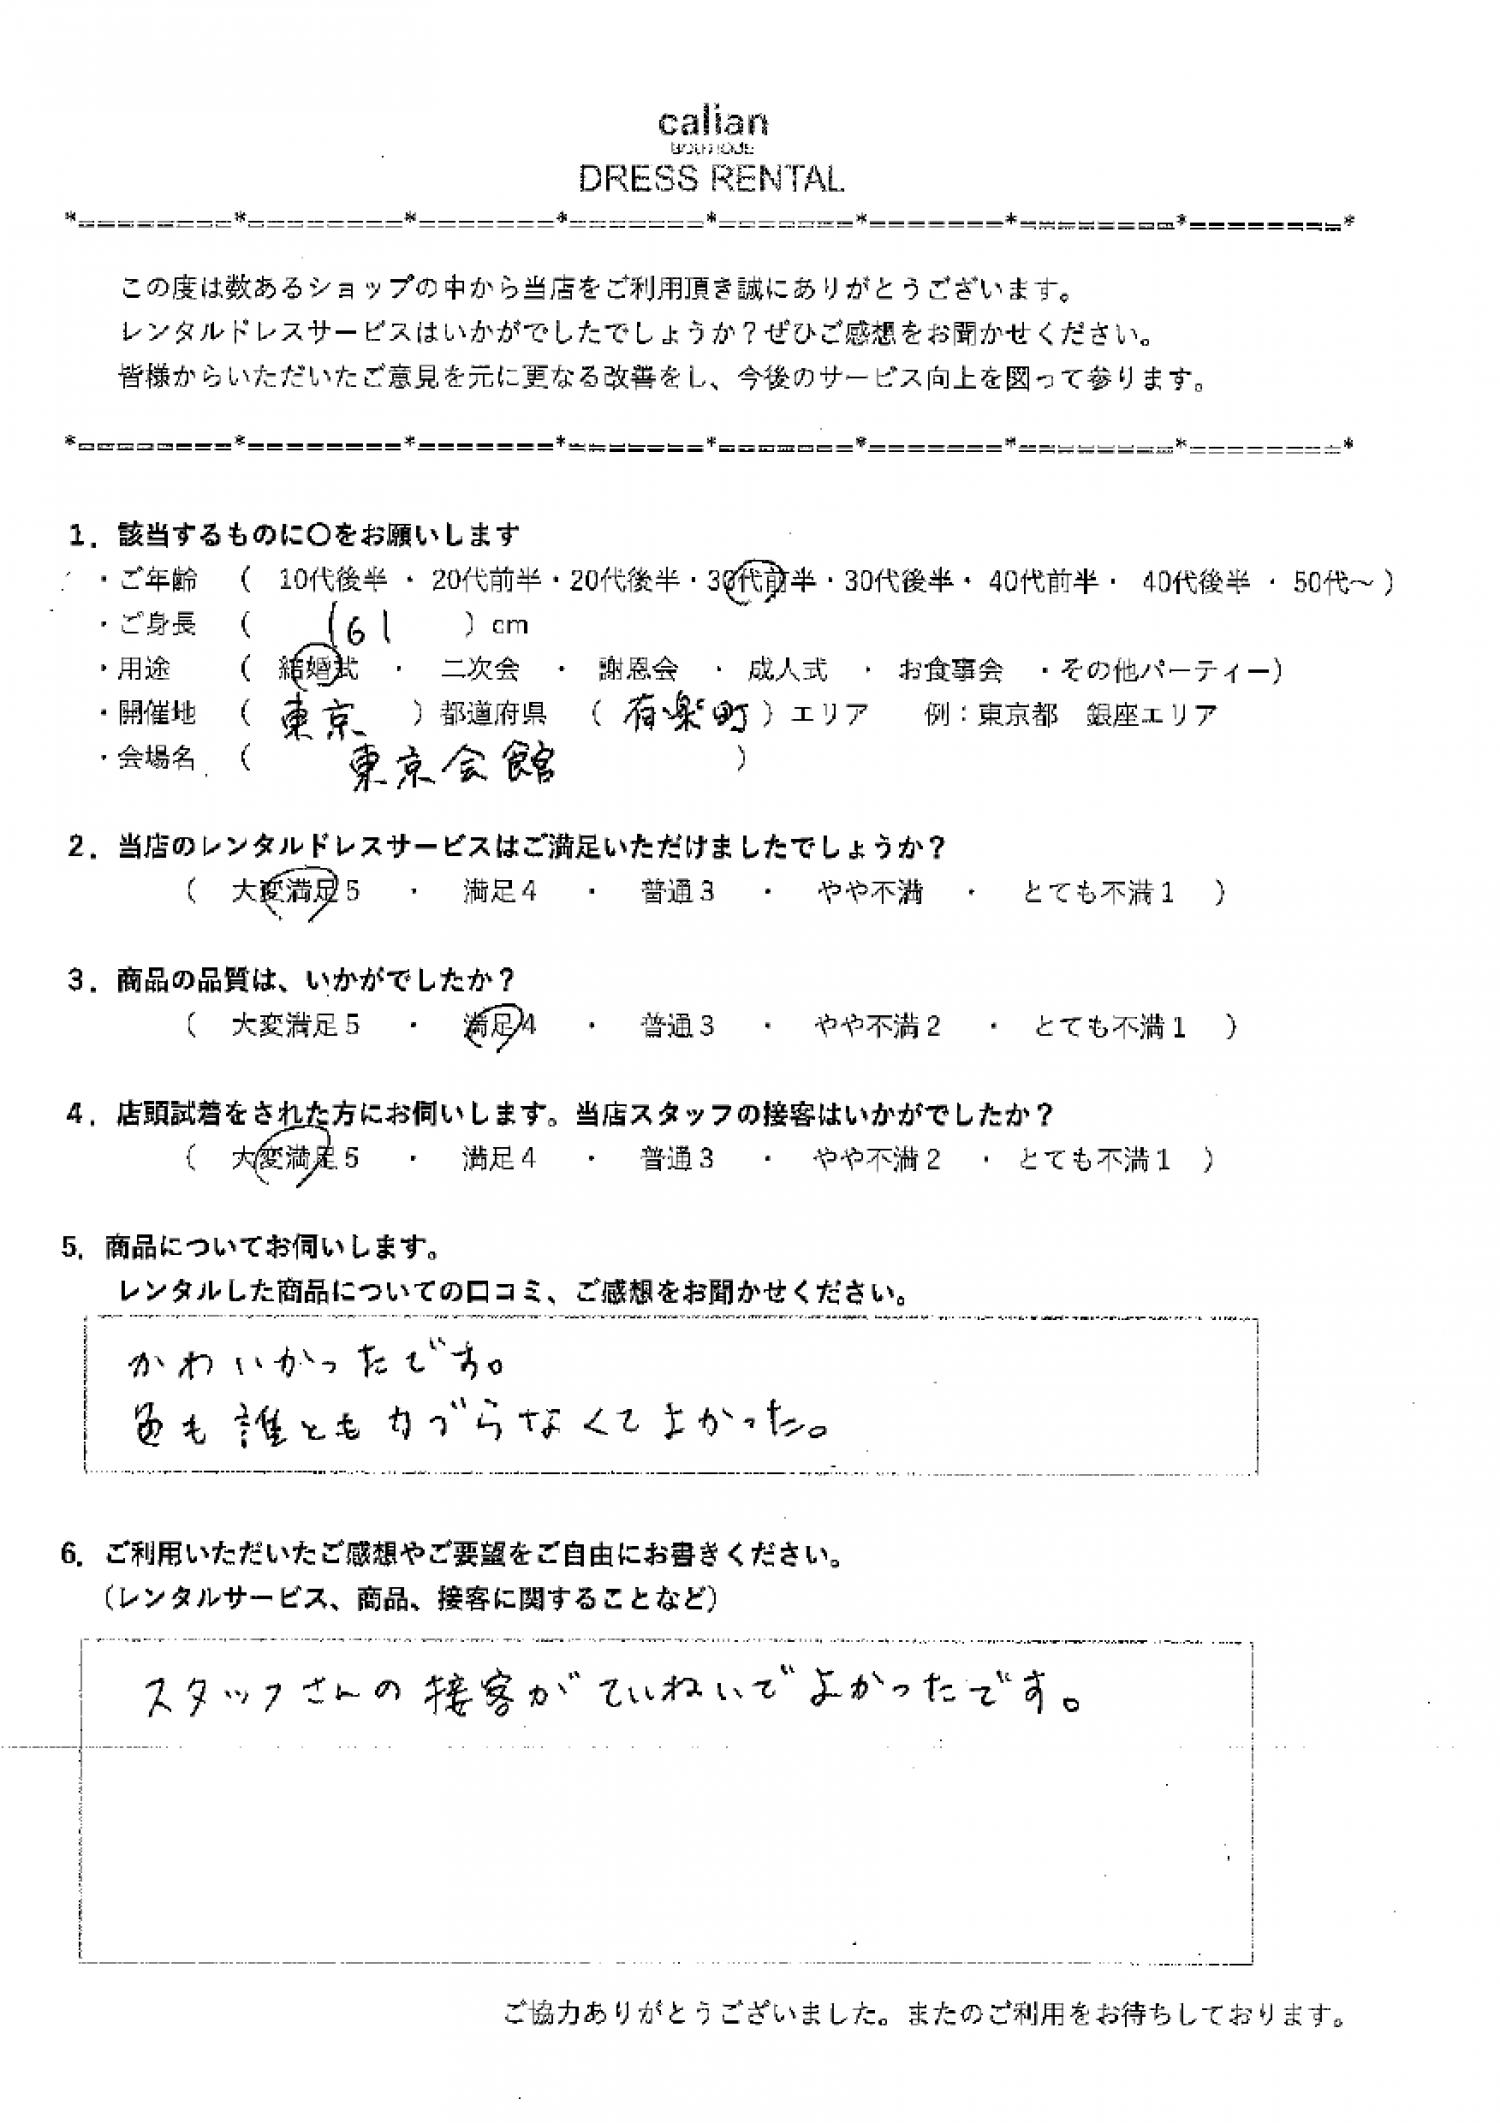 calian
BOUTIQUE
DRESS RENTAL
*========*========*=======*=======*=======*=======*========*========*
この度は数あるショップの中から当店をご利用頂き誠にありがとうございます。
レンタルドレスサービスはいかがでしたでしょうか？ぜひご感想をお聞かせください。
皆様からいただいたご意見を元に更なる改善をし、今後のサービス向上を図って参ります。
*========*========*=======*=======*=======*=======*========*========*
1．該当するものに〇をお願いします
・ご年齢 （ 10代後半 ・ 20代前半・20代後半・30代前半・30代後半・ 40代前半・ 40代後半 ・ 50代～ ）
・ご身長 （ 161 ）cm
・用途 （ 結婚式 ・ 二次会 ・ 謝恩会 ・ 成人式 ・ お食事会 ・その他パーティー）
・開催地 （ 東京 ）都道府県 （ 有楽町 ）エリア 例：東京都 銀座エリア
・会場名 （ 東京会館 ）
2．当店のレンタルドレスサービスはご満足いただけましたでしょうか？
（ 大変満足５ ・ 満足４ ・ 普通３ ・ やや不満 ・ とても不満１ ）
3．商品の品質は、いかがでしたか？
（ 大変満足５ ・ 満足４ ・ 普通３ ・ やや不満２ ・ とても不満１ ）
4．店頭試着をされた方にお伺いします。当店スタッフの接客はいかがでしたか？
（ 大変満足５ ・ 満足４ ・ 普通３ ・ やや不満２ ・ とても不満１ ）
5．商品についてお伺いします。
レンタルした商品についての口コミ、ご感想をお聞かせください。
かわいかったです。
色も誰ともカブらなくてよかった。
6．ご利用いただいたご感想やご要望をご自由にお書きください。
（レンタルサービス、商品、接客に関することなど）
スタッフさんの接客がていねいでよかったです。
ご協力ありがとうございました。またのご利用をお待ちしております。